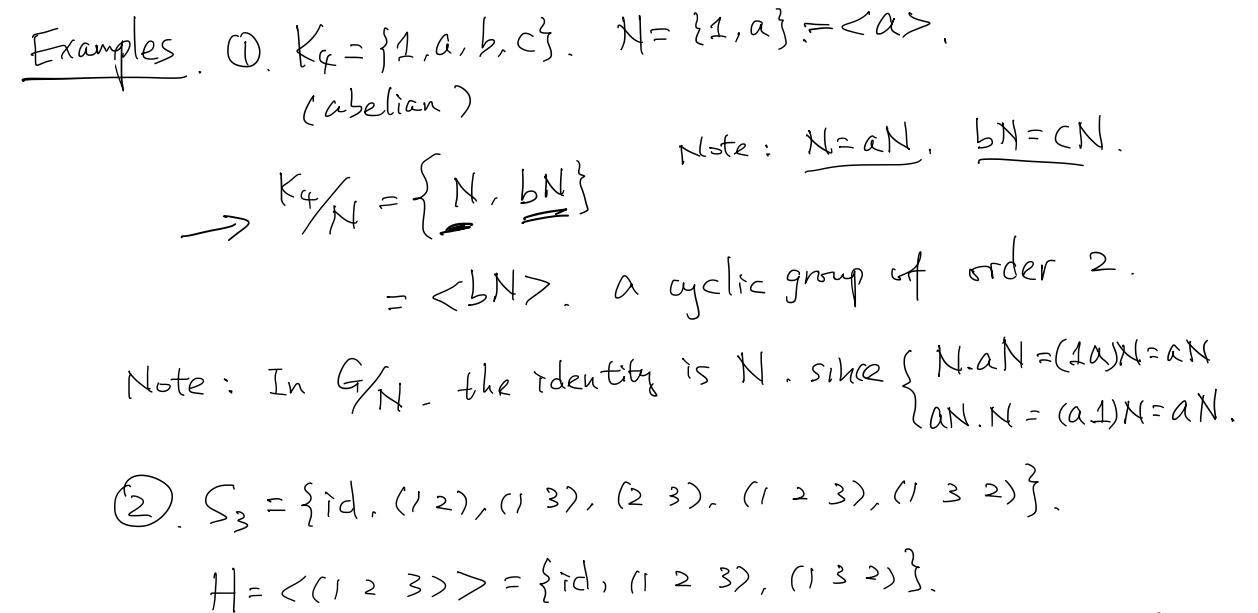 Examples. ①. K₄ = {1, a, b, c}. N = {1, a} = <a>.
(abelian)
Note: N = aN, bN = cN.
→ K₄/N = {N, bN}
= <bN>. a cyclic group of order 2.
Note: In G/N, the identity is N. since { N.aN = (1a)N = aN
aN.N = (a1)N = aN.
②. S₃ = {id, (1 2), (1 3), (2 3), (1 2 3), (1 3 2)}.
H = <(1 2 3)> = {id, (1 2 3), (1 3 2)}.